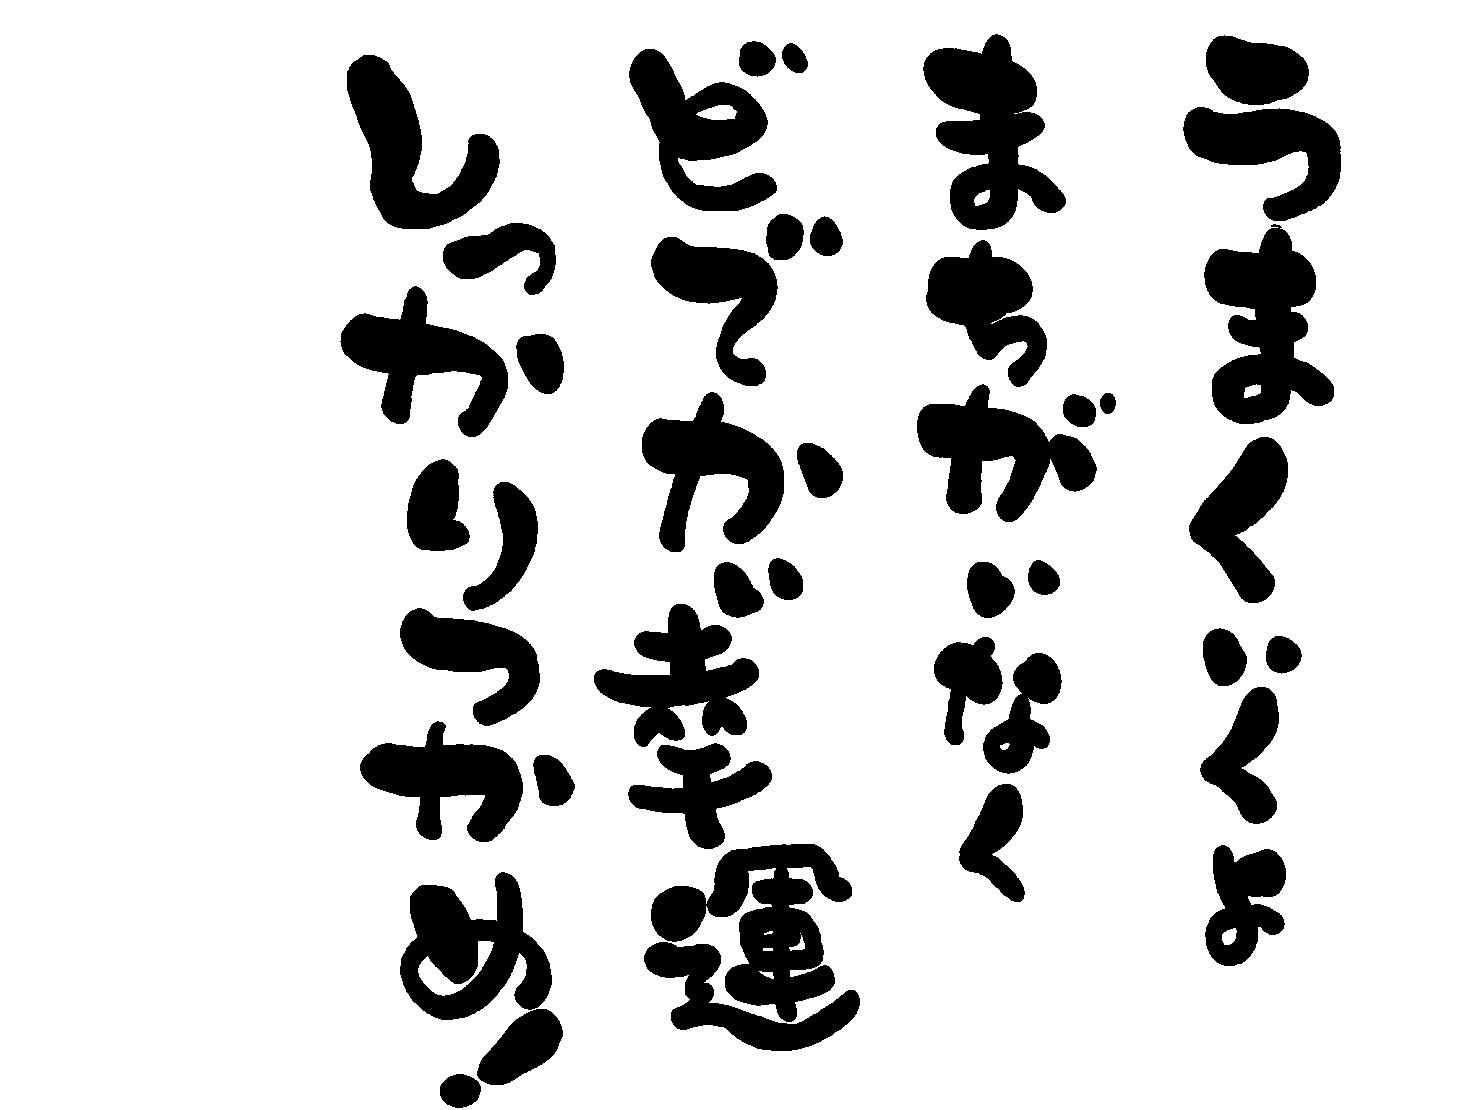 うまくいくよ
まちがいなく
どでかい幸運
しっかりつかめ!